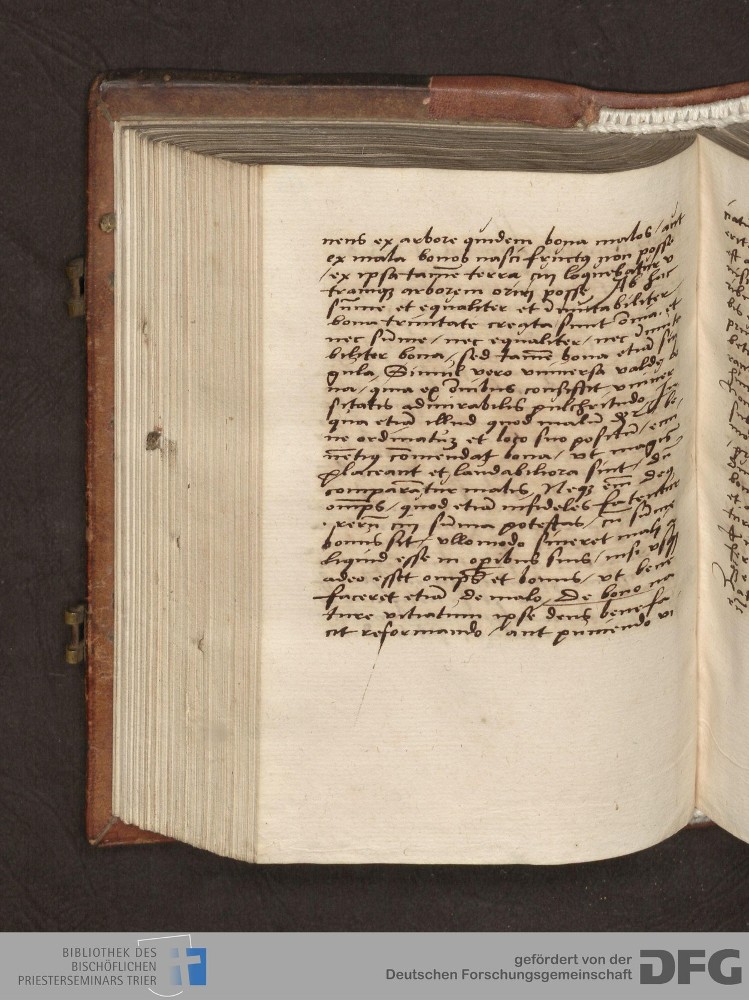 nens ex arbore quidem bona malos / aut
ex mala bonos nasci fructꝫ non posse
/ ex ipsa tamē terra cui loquebatur v
tramqꝫ arborem oriri posse / Ab hac
sūme et equaliter et īmutabiliter
bona trinitate creata sunt oīa, et
nec sūme / nec equaliter / nec īmuta
biliter bona / sed tamē bona etiā sin
gula, Simul vero vniuersa valde bo
na, quia ex oībus consistit vniuer
sitatis admirabilis pulchritudo, In
qua etiā illud quod malū dr̄ / be
ne ordinatuꝫ et loco suo positū, emi
nētiꝰ cōmendat bona / vt magis
placeant et laudabiliora sint / dū
comparātur malis, Neqꝫ em̄ deꝰ
omp̄s / quod etiā infideles fatentur
/ rerū cui sūma potestas / cū sūme
bonus sit / vllo modo sineret mali a
liquid esse in operibus suis / nisi vsqꝫ
adeo esset omp̄s et bonus / vt bene
faceret etiā de malo, De bono na
ture vitiatum ipse deus benefa
cit reformando / aut puniendo vi
BIBLIOTHEK DES
BISCHÖFLICHEN
PRIESTERSEMINARS TRIER
gefördert von der
Deutschen Forschungsgemeinschaft
DFG